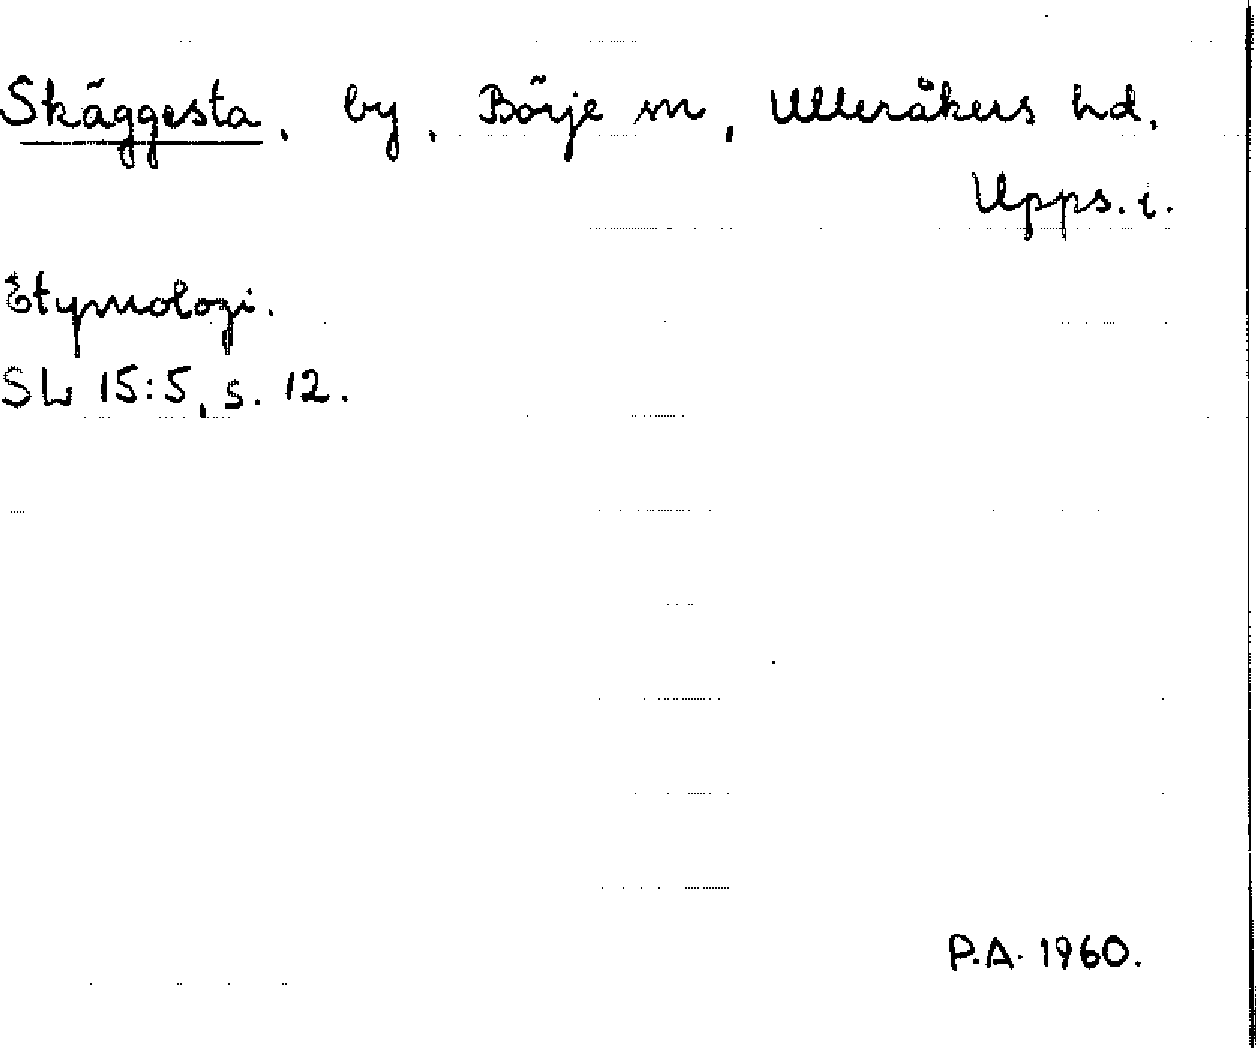 Skäggesta, by, Börje sn, Ulleråkers hd,
Upps. l.
Etymologi.
SL 15:5, s. 12.
P.A. 1960.